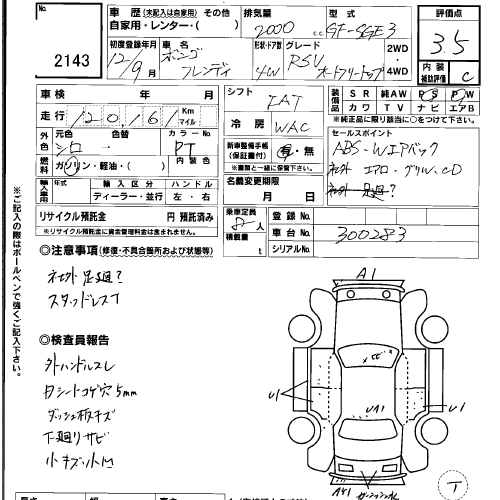 No.
2143
車 歴 (未記入は自家用) その他
自家用・レンター・( )
排気量
2000 c c
型 式
GF-SGE3
評価点
3.5
初度登録年月
12/9月
車 名
ボンゴ
フレンディ
形状・ドア数
4W
グレード
RSV
オートフリートップ
2WD
・
4WD
内 装
補助評価
C
車 検 年 月
シフト
IAT
装備品
S R 純AW P S P W
カ ワ T V ナ ビ エアB
※純正品に限り該当に○をつけて下さい。
走 行 120,161 Km マイル
冷 房
WAC
外色
元色 色替
シロ
カラーNo.
PT
新車整備手帳
(保証書付)
有・無
※書類と一緒に保管下さい。
セールスポイント
ABS・Wエアバック
社外 エアロ・グリル、CD
社外 足廻?
燃料
ガソリン・軽油・( )
内 装 色
輸入車用
年式
輸 入 区 分
ディーラー・並行
ハ ン ド ル
左 ・ 右
名義変更期限
月 日
リサイクル預託金 円 預託済み
※リサイクル預託金に資金管理料金は含まれません。
乗車定員
8人
積載量
t
登 録 No.
車 台 No.
300283
シリアルNo.
◎注意事項 (修復・不具合箇所および状態等)
社外 足廻?
スタッドレスT
◎検査員報告
外ハンドルスレ
内シートコゲ穴5mm
ダッシュ板キズ
下廻りサビ
小キズ小凹
※ご記入の際はボールペンで強くご記入下さい。
A1
U1
U1
UA1
AY1
T